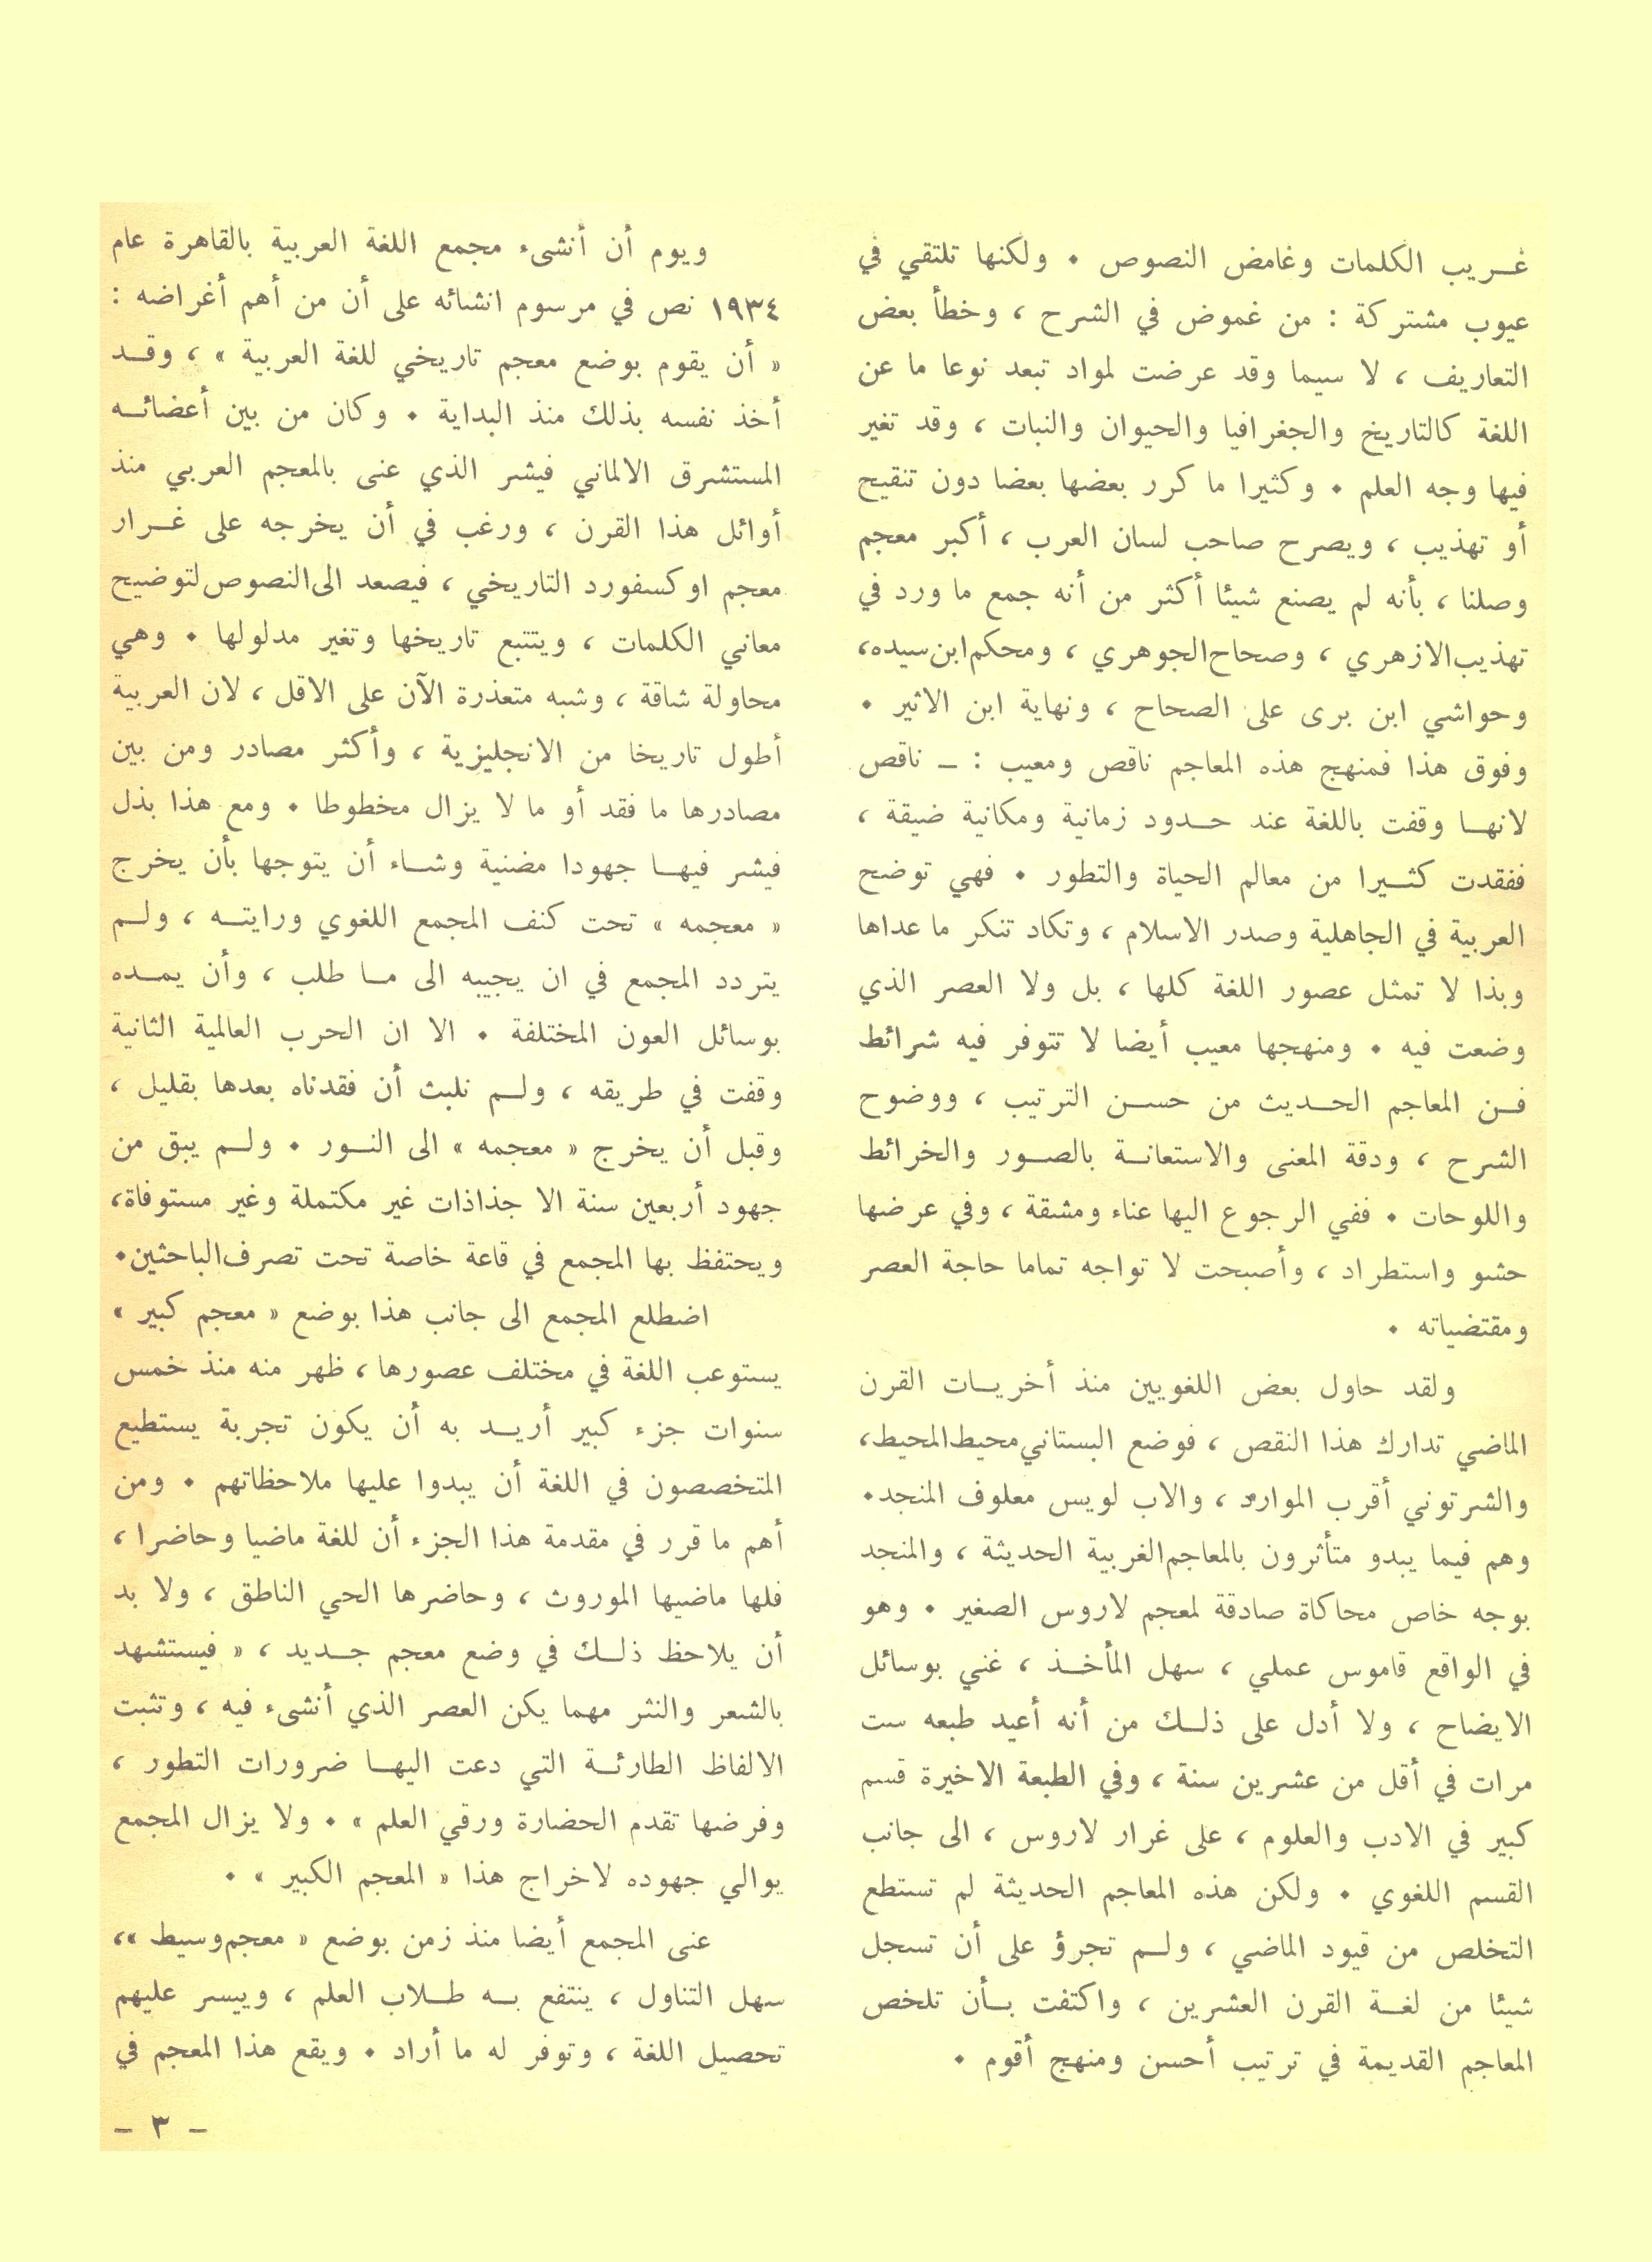 غـــريب الكلمات وغامض النصوص ٠ ولكنها تلتقي في
عيوب مشتركة : من غموض في الشرح ، وخطأ بعض
التعاريف ، لا سيما وقد عرضت لمواد تبعد نوعا ما عن
اللغة كالتاريخ والجغرافيا والحيوان والنبات ، وقد تغير
فيها وجه العلم ٠ وكثيرا ما كرر بعضها بعضا دون تنقيح
أو تهذيب ، ويصرح صاحب لسان العرب ، أكبر معجم
وصلنا ، بأنه لم يصنع شيئا أكثر من أنه جمع ما ورد في
تهذيب الازهري ، وصحاح الجوهري ، ومحكم ابن سيده،
وحواشي ابن برى على الصحاح ، ونهاية ابن الاثير ٠
وفوق هذا فمنهج هذه المعاجم ناقص ومعيب : ــ ناقص
لانهـــا وقفت باللغة عند حـــدود زمانية ومكانية ضيقة ،
ففقدت كثـــيرا من معالم الحياة والتطور ٠ فهي توضح
العربية في الجاهلية وصدر الاسلام ، وتكاد تنكر ما عداها
وبذا لا تمثل عصور اللغة كلها ، بل ولا العصر الذي
وضعت فيه ٠ ومنهجها معيب أيضا لا تتوفر فيه شرائط
فـــن المعاجم الحـــديث من حســـن الترتيب ، ووضوح
الشرح ، ودقة المعنى والاستعانـــة بالصـــور والخرائط
واللوحات ٠ ففي الرجوع اليها عناء ومشقة ، وفي عرضها
حشو واستطراد ، وأصبحت لا تواجه تماما حاجة العصر
ومقتضياته ٠
ولقد حاول بعض اللغويين منذ أخريـــات القرن
الماضي تدارك هذا النقص ، فوضع البستاني محيط المحيط،
والشرتوني أقرب الموارد ، والاب لويس معلوف المنجد٠
وهم فيما يبدو متأثرون بالمعاجم الغربية الحديثة ، والمنجد
بوجه خاص محاكاة صادقة لمعجم لاروس الصغير ٠ وهو
في الواقع قاموس عملي ، سهل المأخـــذ ، غني بوسائل
الايضاح ، ولا أدل على ذلـــك من أنه أعيد طبعه ست
مرات في أقل من عشرين سنة ، وفي الطبعة الاخيرة قسم
كبير في الادب والعلوم ، على غرار لاروس ، الى جانب
القسم اللغوي ٠ ولكن هذه المعاجم الحديثة لم تستطع
التخلص من قيود الماضي ، ولـــم تجرؤ على أن تسجل
شيئا من لغـــة القرن العشرين ، واكتفت بـــأن تلخص
المعاجم القديمة في ترتيب أحسن ومنهج أقوم ٠
ويوم أن أنشىء مجمع اللغة العربية بالقاهرة عام
١٩٣٤ نص في مرسوم انشائه على أن من أهم أغراضه :
« أن يقوم بوضع معجم تاريخي للغة العربية » ، وقـــد
أخذ نفسه بذلك منذ البداية ٠ وكان من بين أعضائـــه
المستشرق الالماني فيشر الذي عنى بالمعجم العربي منذ
أوائل هذا القرن ، ورغب في أن يخرجه على غـــرار
معجم اوكسفورد التاريخي ، فيصعد الى النصوص لتوضيح
معاني الكلمات ، ويتتبع تاريخها وتغير مدلولها ٠ وهي
محاولة شاقة ، وشبه متعذرة الآن على الاقل ، لان العربية
أطول تاريخا من الانجليزية ، وأكثر مصادر ومن بين
مصادرها ما فقد أو ما لا يزال مخطوطا ٠ ومع هذا بذل
فيشر فيهـــا جهودا مضنية وشـــاء أن يتوجها بأن يخرج
« معجمه » تحت كنف المجمع اللغوي ورايتـــه ، ولـــم
يتردد المجمع في ان يجيبه الى مـــا طلب ، وأن يمـــده
بوسائل العون المختلفة ٠ الا ان الحرب العالمية الثانية
وقفت في طريقه ، ولـــم نلبث أن فقدناه بعدها بقليل ،
وقبل أن يخرج « معجمه » الى النـــور ٠ ولـــم يبق من
جهود أربعين سنة الا جذاذات غير مكتملة وغير مستوفاة،
ويحتفظ بها المجمع في قاعة خاصة تحت تصرف الباحثين٠
اضطلع المجمع الى جانب هذا بوضع « معجم كبير »
يستوعب اللغة في مختلف عصورها ، ظهر منه منذ خمس
سنوات جزء كبير أريـــد به أن يكون تجربة يستطيع
المتخصصون في اللغة أن يبدوا عليها ملاحظاتهم ٠ ومن
أهم ما قرر في مقدمة هذا الجزء أن للغة ماضيا وحاضرا ،
فلها ماضيها الموروث ، وحاضرها الحي الناطق ، ولا بد
أن يلاحظ ذلـــك في وضع معجم جـــديد ، « فيستشهد
بالشعر والنثر مهما يكن العصر الذي أنشىء فيه ، وتثبت
الالفاظ الطارئـــة التي دعت اليهـــا ضرورات التطور ،
وفرضها تقدم الحضارة ورقي العلم » ٠ ولا يزال المجمع
يوالي جهوده لاخراج هذا « المعجم الكبير » ٠
عنى المجمع أيضا منذ زمن بوضع « معجم وسيط »،
سهل التناول ، ينتفع بـــه طـــلاب العلم ، وييسر عليهم
تحصيل اللغة ، وتوفر له ما أراد ٠ ويقع هذا المعجم في
ــ ٣ ــ